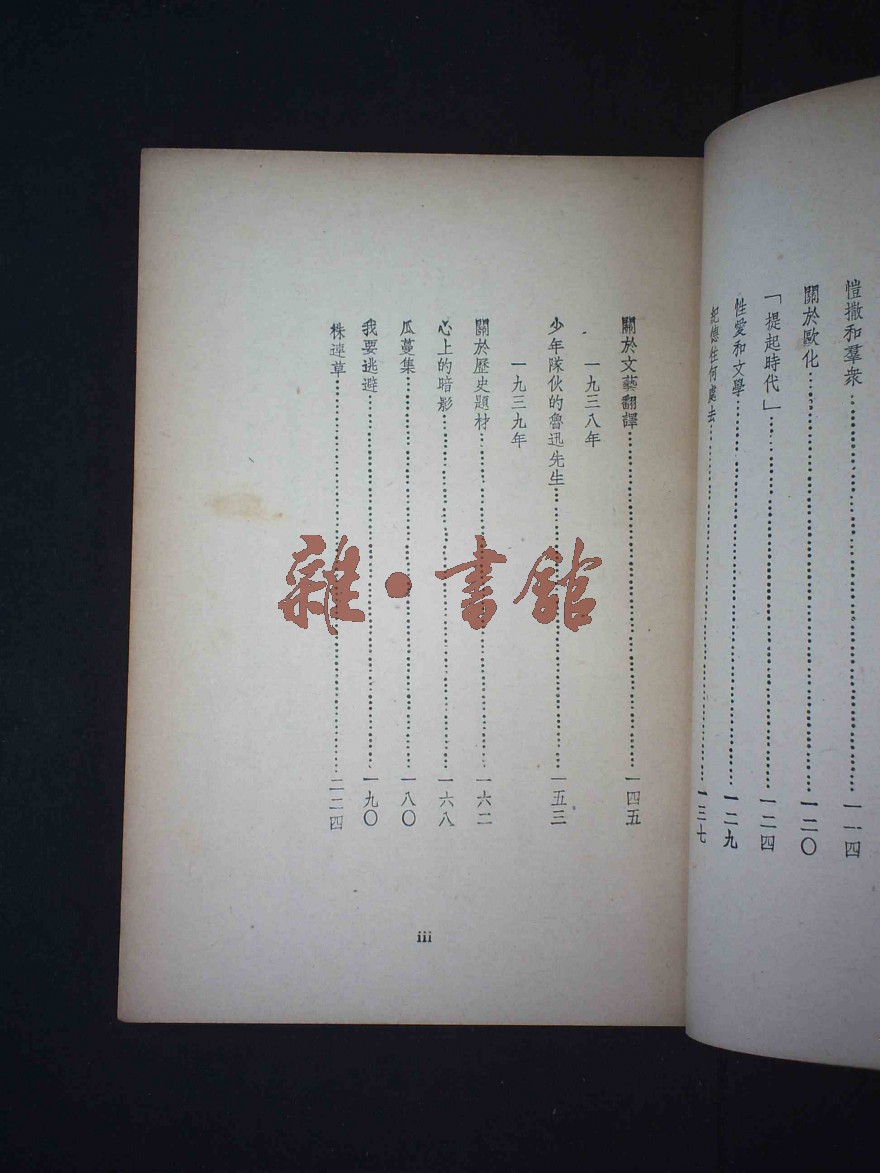 愷撒和羣衆……一一四
關於歐化……一二〇
「提起時代」……一二四
性愛和文學……一二九
紀德往何處去……一三七
關於文藝翻譯……一四五
一九三八年
少年隊伙的魯迅先生……一五三
一九三九年
關於歷史題材……一六二
心上的暗影……一六八
瓜蔓集……一八〇
我要逃避……一九〇
株連草……二二四
iii
雜·書館